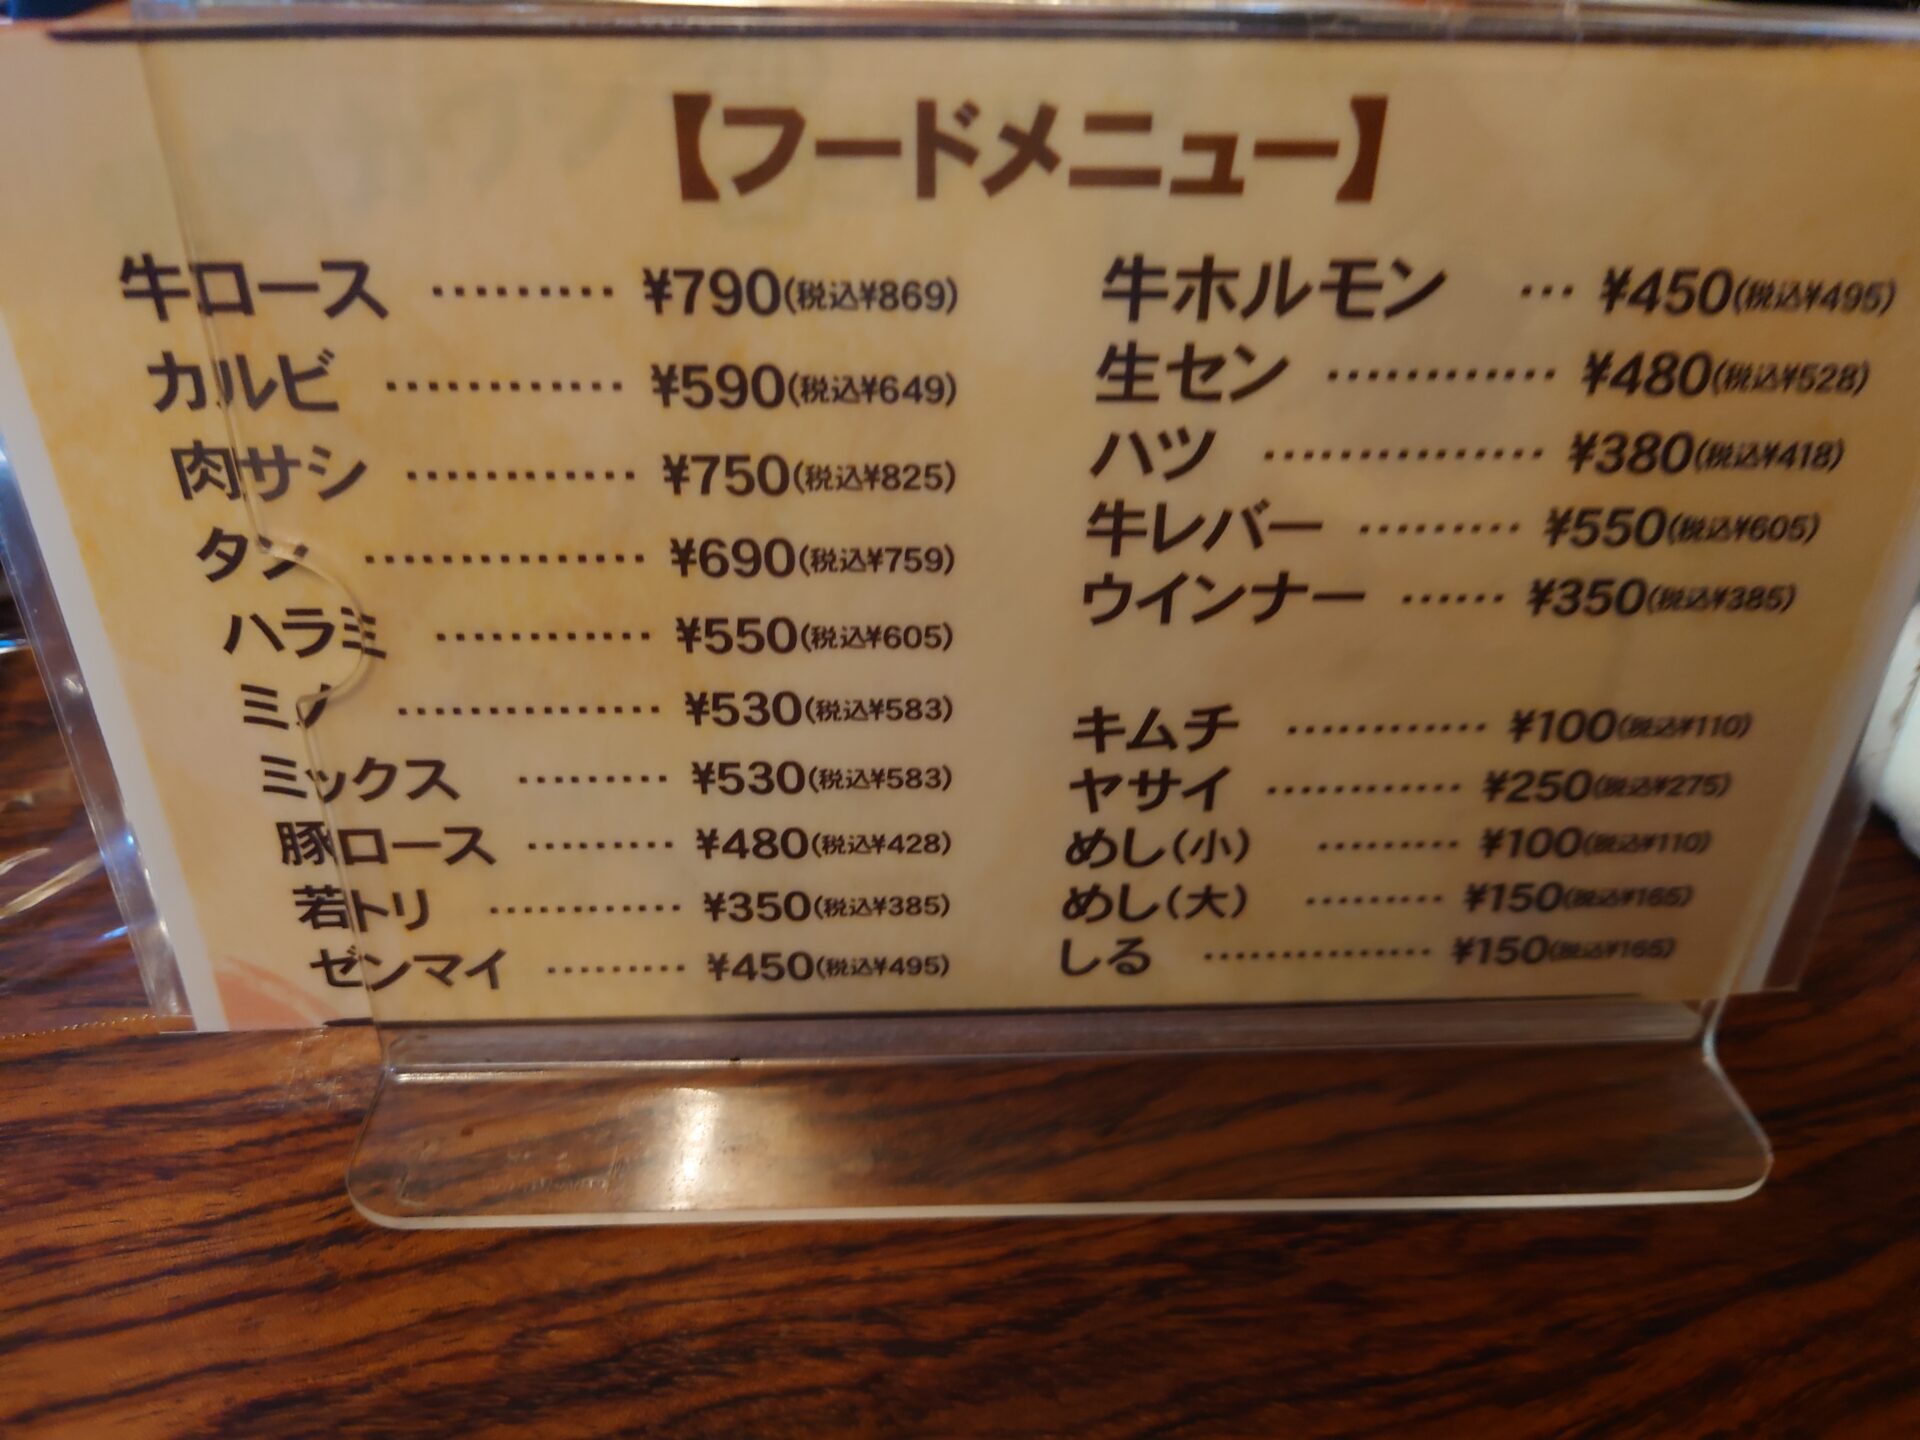 【フードメニュー】
牛ロース ……… ¥790(税込¥869)
カルビ ………… ¥590(税込¥649)
肉サシ ………… ¥750(税込¥825)
タン …………… ¥690(税込¥759)
ハラミ ………… ¥550(税込¥605)
ミノ …………… ¥530(税込¥583)
ミックス ……… ¥530(税込¥583)
豚ロース ……… ¥480(税込¥428)
若トリ ………… ¥350(税込¥385)
ゼンマイ ……… ¥450(税込¥495)
牛ホルモン … ¥450(税込¥495)
生セン ………… ¥480(税込¥528)
ハツ …………… ¥380(税込¥418)
牛レバー ……… ¥550(税込¥605)
ウインナー …… ¥350(税込¥385)
キムチ ………… ¥100(税込¥110)
ヤサイ ………… ¥250(税込¥275)
めし(小) ……… ¥100(税込¥110)
めし(大) ……… ¥150(税込¥165)
しる …………… ¥150(税込¥165)